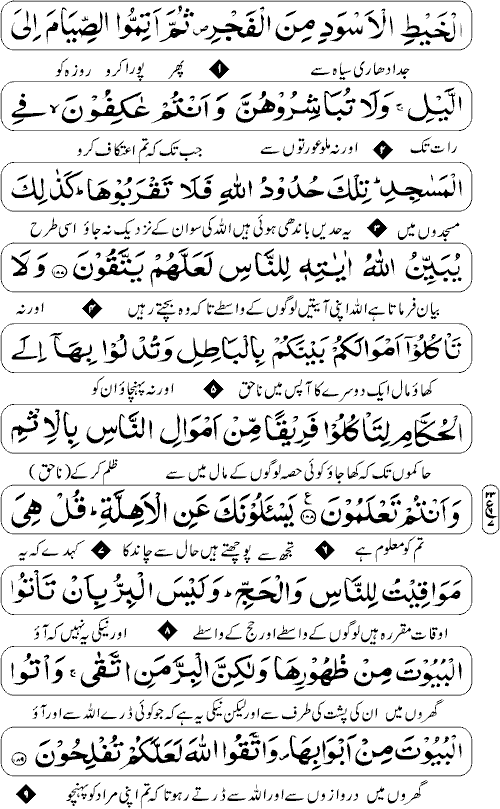 الْخَيْطِ الْاَسْوَدِ مِنَ الْفَجْرِ ثُمَّ اَتِمُّوا الصِّيَامَ اِلَى
جدا دھاری سیاہ سے ۱ پھر پورا کرو روزہ کو
الَّيْلِ ۚ وَلَا تُبَاشِرُوْهُنَّ وَ اَنْتُمْ عٰكِفُوْنَ ۙ فِي
رات تک ۲ اور نہ ملو عورتوں سے جب تک کہ تم اعتکاف کرو
الْمَسٰجِدِ ؕ تِلْكَ حُدُوْدُ اللّٰهِ فَلَا تَقْرَبُوْهَا ؕ كَذٰلِكَ
مسجدوں میں ۳ یہ حدیں باندھی ہوئی ہیں اللہ کی سو ان کے نزدیک نہ جاؤ اسی طرح
يُبَيِّنُ اللّٰهُ اٰيٰتِهٖ لِلنَّاسِ لَعَلَّهُمْ يَتَّقُوْنَ ۝۱۸۷ وَ لَا
بیان فرماتا ہے اللہ اپنی آیتیں لوگوں کے واسطے تاکہ وہ بچتے رہیں ۴ اور نہ
تَاْكُلُوْۤا اَمْوَالَكُمْ بَيْنَكُمْ بِالْبَاطِلِ وَ تُدْلُوْا بِهَاۤ اِلَى
کھاؤ مال ایک دوسرے کا آپس میں ناحق ۵ اور نہ پہنچاؤ ان کو
الْحُكَّامِ لِتَاْكُلُوْا فَرِيْقًا مِّنْ اَمْوَالِ النَّاسِ بِالْاِثْمِ
حاکموں تک کہ کھا جاؤ کوئی حصہ لوگوں کے مال میں سے ظلم کر کے (ناحق)
وَ اَنْتُمْ تَعْلَمُوْنَ ۝۱۸۸ ع يَسْـَٔلُوْنَكَ عَنِ الْاَهِلَّةِ ؕ قُلْ هِيَ
تم کو معلوم ہے ۶ تجھ سے پوچھتے ہیں حال سے چاند کا ۷ کہدے کہ یہ
مَوَاقِيْتُ لِلنَّاسِ وَالْحَجِّ ؕ وَلَيْسَ الْبِرُّ بِاَنْ تَاْتُوا
اوقات مقررہ ہیں لوگوں کے واسطے اور حج کے واسطے ۸ اور نیکی یہ نہیں کہ آؤ
الْبُيُوْتَ مِنْ ظُهُوْرِهَا وَلٰكِنَّ الْبِرَّ مَنِ اتَّقٰى ۚ وَاْتُوا
گھروں میں ان کی پشت کی طرف سے اور لیکن نیکی یہ ہے کہ جو کوئی ڈرے اللہ سے اور آؤ
الْبُيُوْتَ مِنْ اَبْوَابِهَا ۪ وَاتَّقُوا اللّٰهَ لَعَلَّكُمْ تُفْلِحُوْنَ ۝۱۸۹
گھروں میں دروازوں سے اور اللہ سے ڈرتے رہو تاکہ تم اپنی مراد کو پہنچو ۹